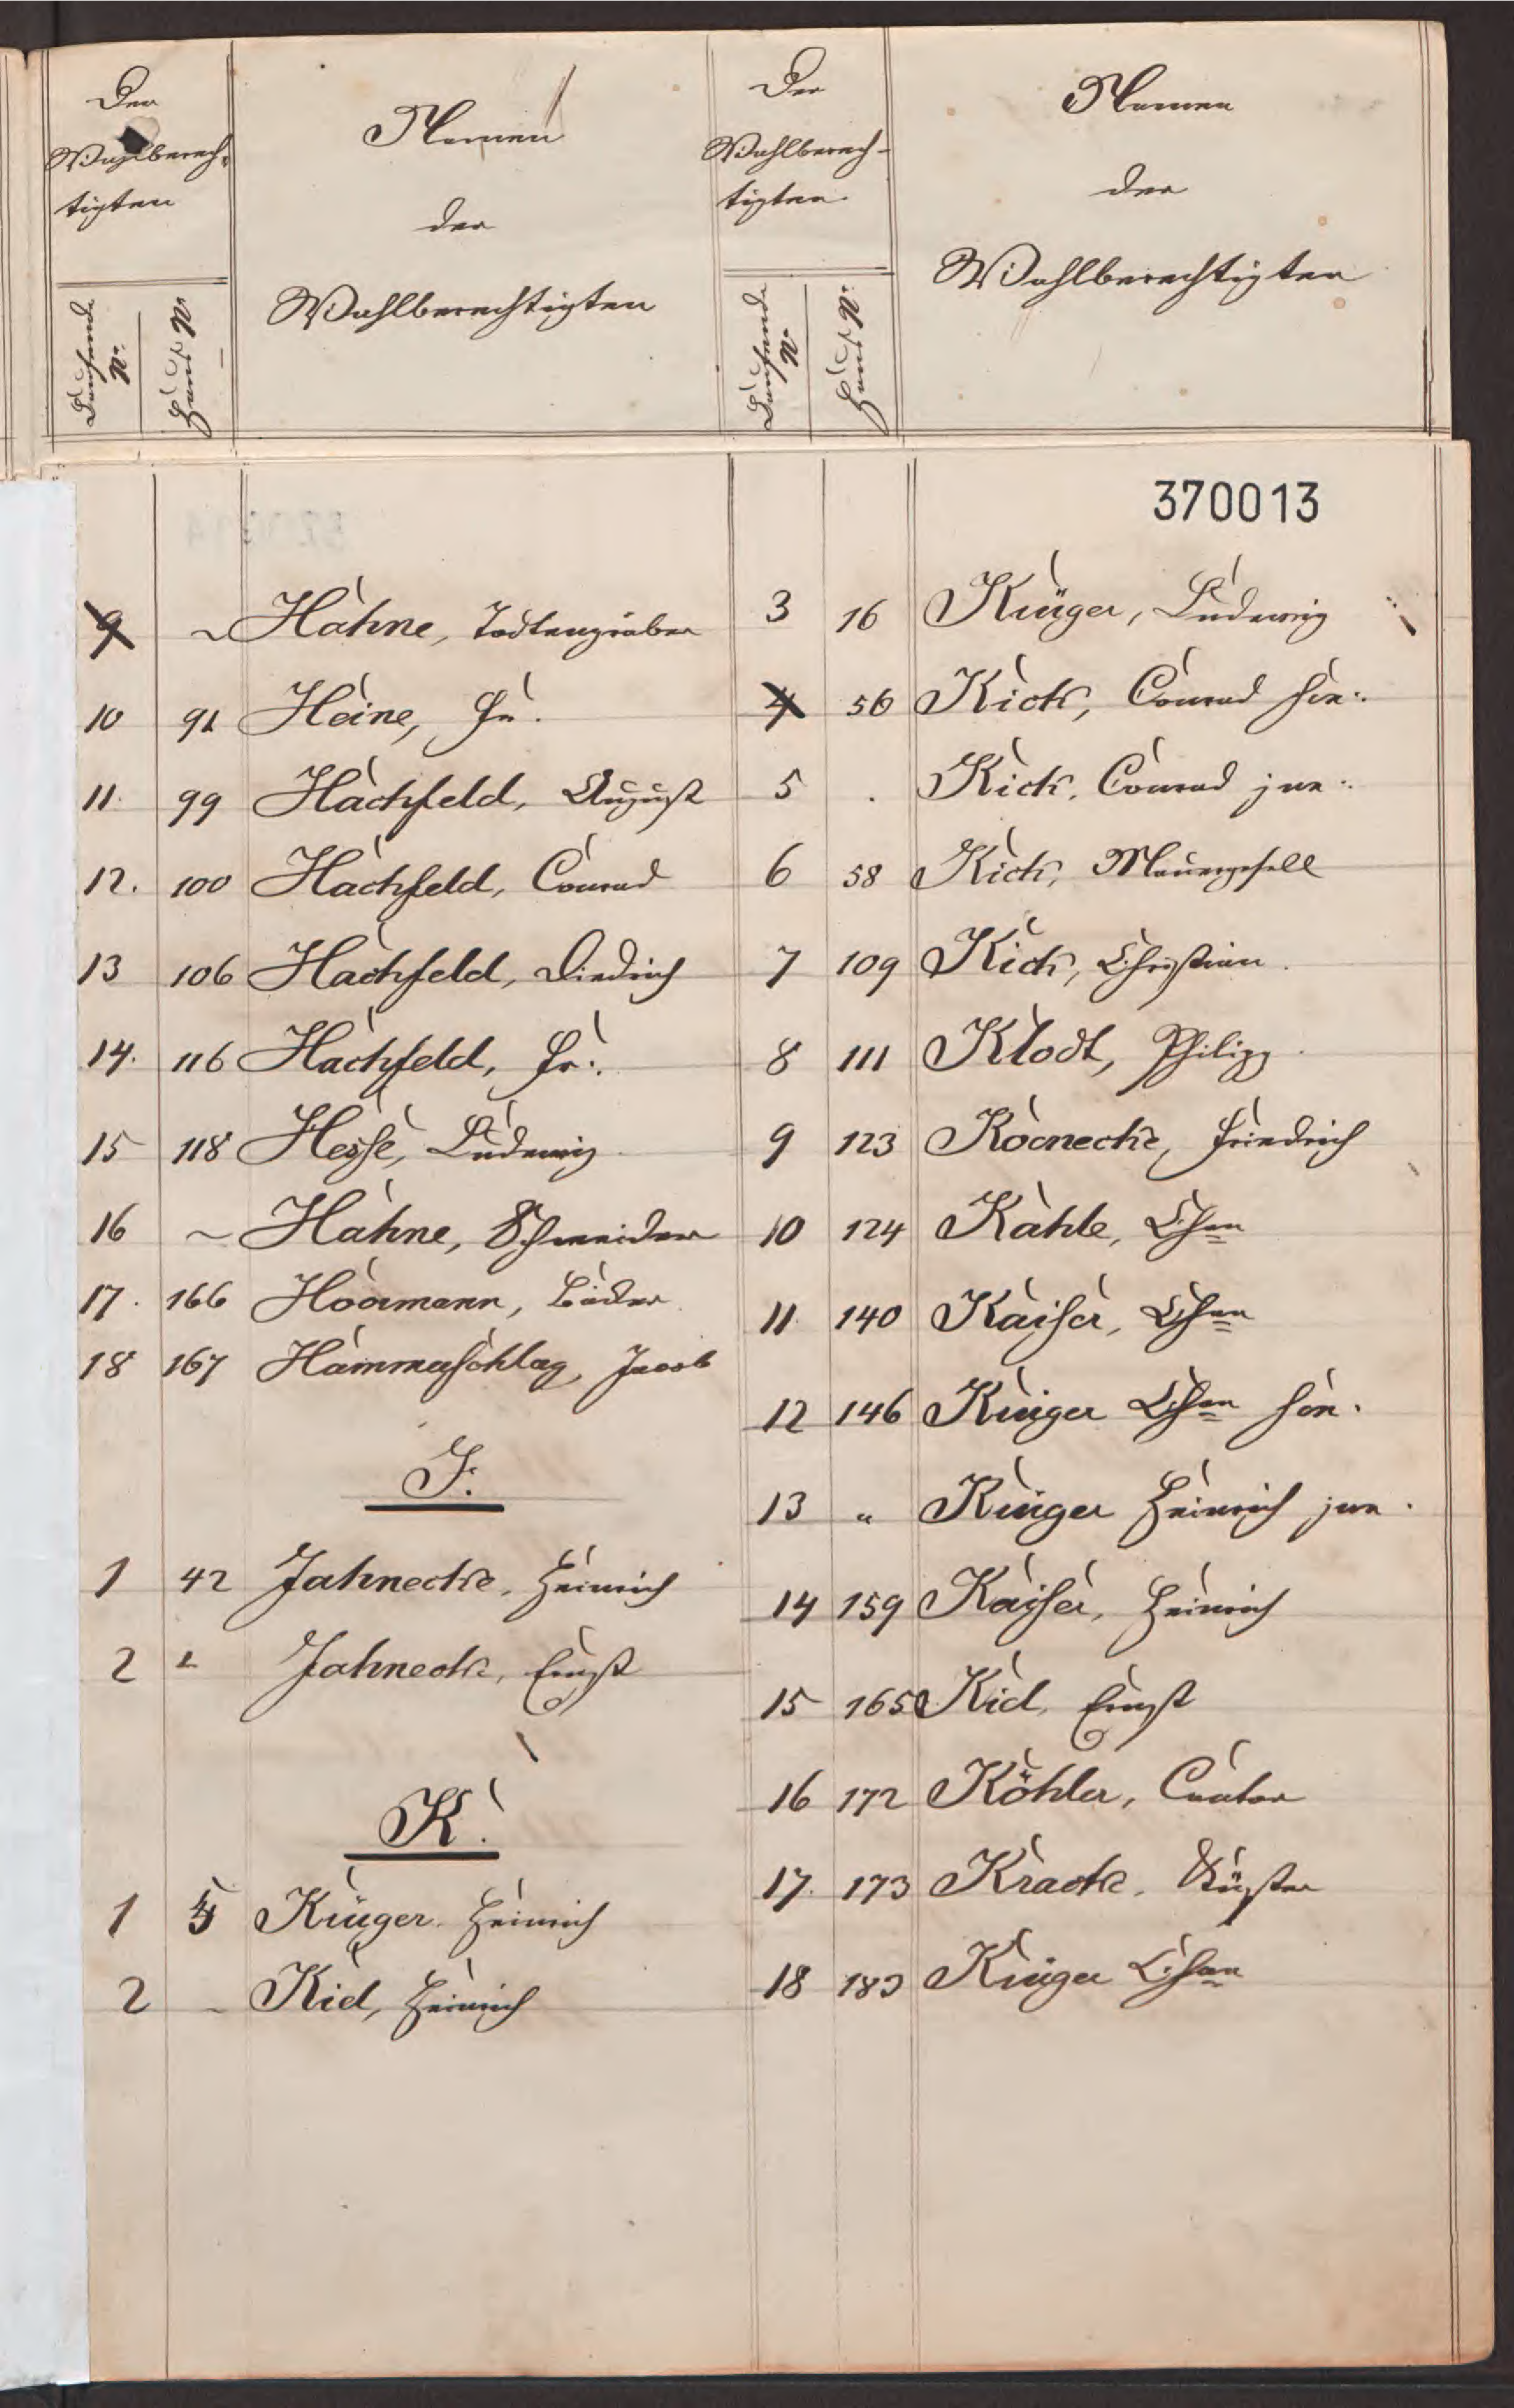 Der
Wahlberech-
tigten
Laufende
N.
Haus N.
Namen
der
Wahlberechtigten
9 ~ Hahne, Todtengräber
10 91 Heine, Fr.
11. 99 Hachfeld, August
12. 100 Hachfeld, Conrad
13 106 Hachfeld, Diedrich
14. 116 Hachfeld, Fr:.
15 118 Hesse, Ludewig
16 ~ Hahne, Schneider
17. 166 Hörmann,
18 167 Hammerschlag, Jacob
J.
1 42 Jahnecke, Heinrich
2 " Jahnecke, Ernst
K.
1 Krüger. Heinrich
2 - Kiel, Heinrich
Der
Wahlberech-
tigten.
Laufende
N.
Haus N.
Namen
der
Wahlberechtigten
370013
3 16 Krüger, Ludewig
4 56 Kick, Conrad sen:.
5 . Kick, Conrad jun:.
6 58 Kick, Mauergesell
7 109 Kick, Christian.
8 111 Klodt, Philipp.
9 123 Könecke, Friedrich
10 124 Kahle, Chr
11 140 Kaiser, Chr
12 146 Krüger Chr sen.
13 " Krüger Heinrich jun.
14 159 Kaiser, Heinrich
15 165 Kiel, Ernst
16 172 Köhler, Cantor
17. 173 Kracke, Küster
18 183 Krüger Chr